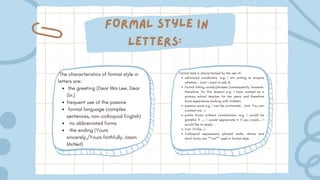 FORMAL STYLE IN
LETTERS:
The characteristics of formal style in
letters are:
the greeting (Dear Mrs Lee, Dear
Sir,)
frequent use of the passive
formal language (complex
sentences, non-colloquial English)
no abbreviated forms
the ending (Yours
sincerely,/Yours faithfully, Jason
McNeil)
Formal style is characterised by the use of:
advanced vocabulary e.g. I am writing to enquire
whether... (not: I want to ask if)
formal linking words/phrases (consequently, however,
therefore, for this reason) e.g. I have worked as a
primary school teacher for ten years and therefore
have experience working with children.
passive voice e.g. I can be contacted... (not: You can
contact me...)
polite forms without contractions e.g. I would be
grateful if ...
Colloquial expressions, phrasal verbs, idioms and
short forms are used in formal style